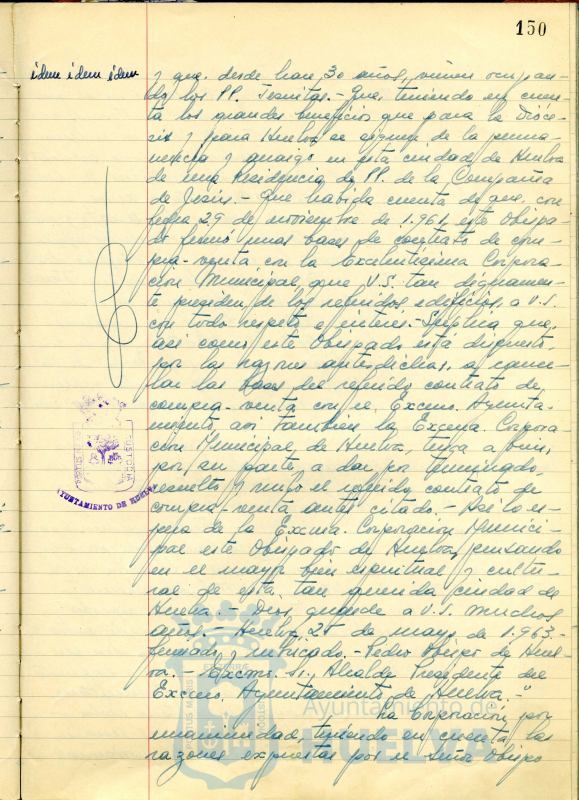 150
ídem ídem ídem
y que, desde hace 30 años, vienen ocupan-
do los PP. Jesuitas.- Que, teniendo en cuen-
ta los grandes beneficios que para la Dióce-
sis y para Huelva se siguen de la perma-
nencia y arraigo en esta ciudad de Huelva
de una Residencia de PP. de la Compañía
de Jesús.- Que habida cuenta de que, con
fecha 29 de noviembre de 1.961, este Obispa-
do firmó unas bases de contrato de com-
pra-venta con la Excelentísima Corpora-
ción Municipal, que V.S. tan dignamen-
te preside, de los referidos edificios, a V.S.
con todo respeto e interés.- Suplica que,
así como este Obispado está dispuesto,
por las razones antedichas, a cance-
lar las bases del referido contrato de
compra-venta con ese Excmo. Ayunta-
miento, así también la Excma. Corpora-
ción Municipal de Huelva, tenga a bien,
por su parte a dar por terminado,
resuelto y nulo el referido contrato de
compra-venta antes citado.- Así lo es-
pera de la Excma. Corporación Munici-
pal este Obispado de Huelva, pensando
en el mayor bien espiritual y cultu-
ral de esta tan querida ciudad de
Huelva.- Dios guarde a V.S. muchos
años.- Huelva, 25 de mayo de 1.963.-
firmado y rubricado.- Pedro Obispo de Huel-
va.- Excmo. Sr. Alcalde Presidente del
Excmo. Ayuntamiento de Huelva.-"
La Corporación, por
unanimidad, teniendo en cuenta las
razones expuestas por el Señor Obispo
AYUNTAMIENTO DE HUELVA
PORTUS MARIS
CUSTODIA
Ayuntamiento de
HUELVA